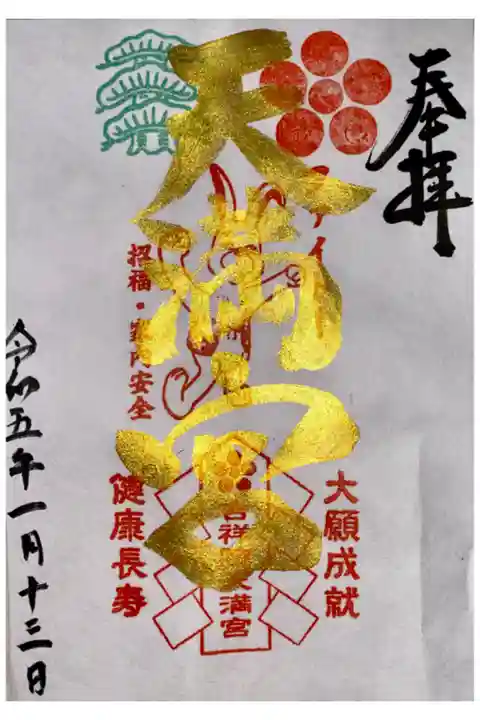 奉拝
天満宮
招福・家内安全
大願成就
吉祥院天満宮
健康長寿
令和五年一月十三日